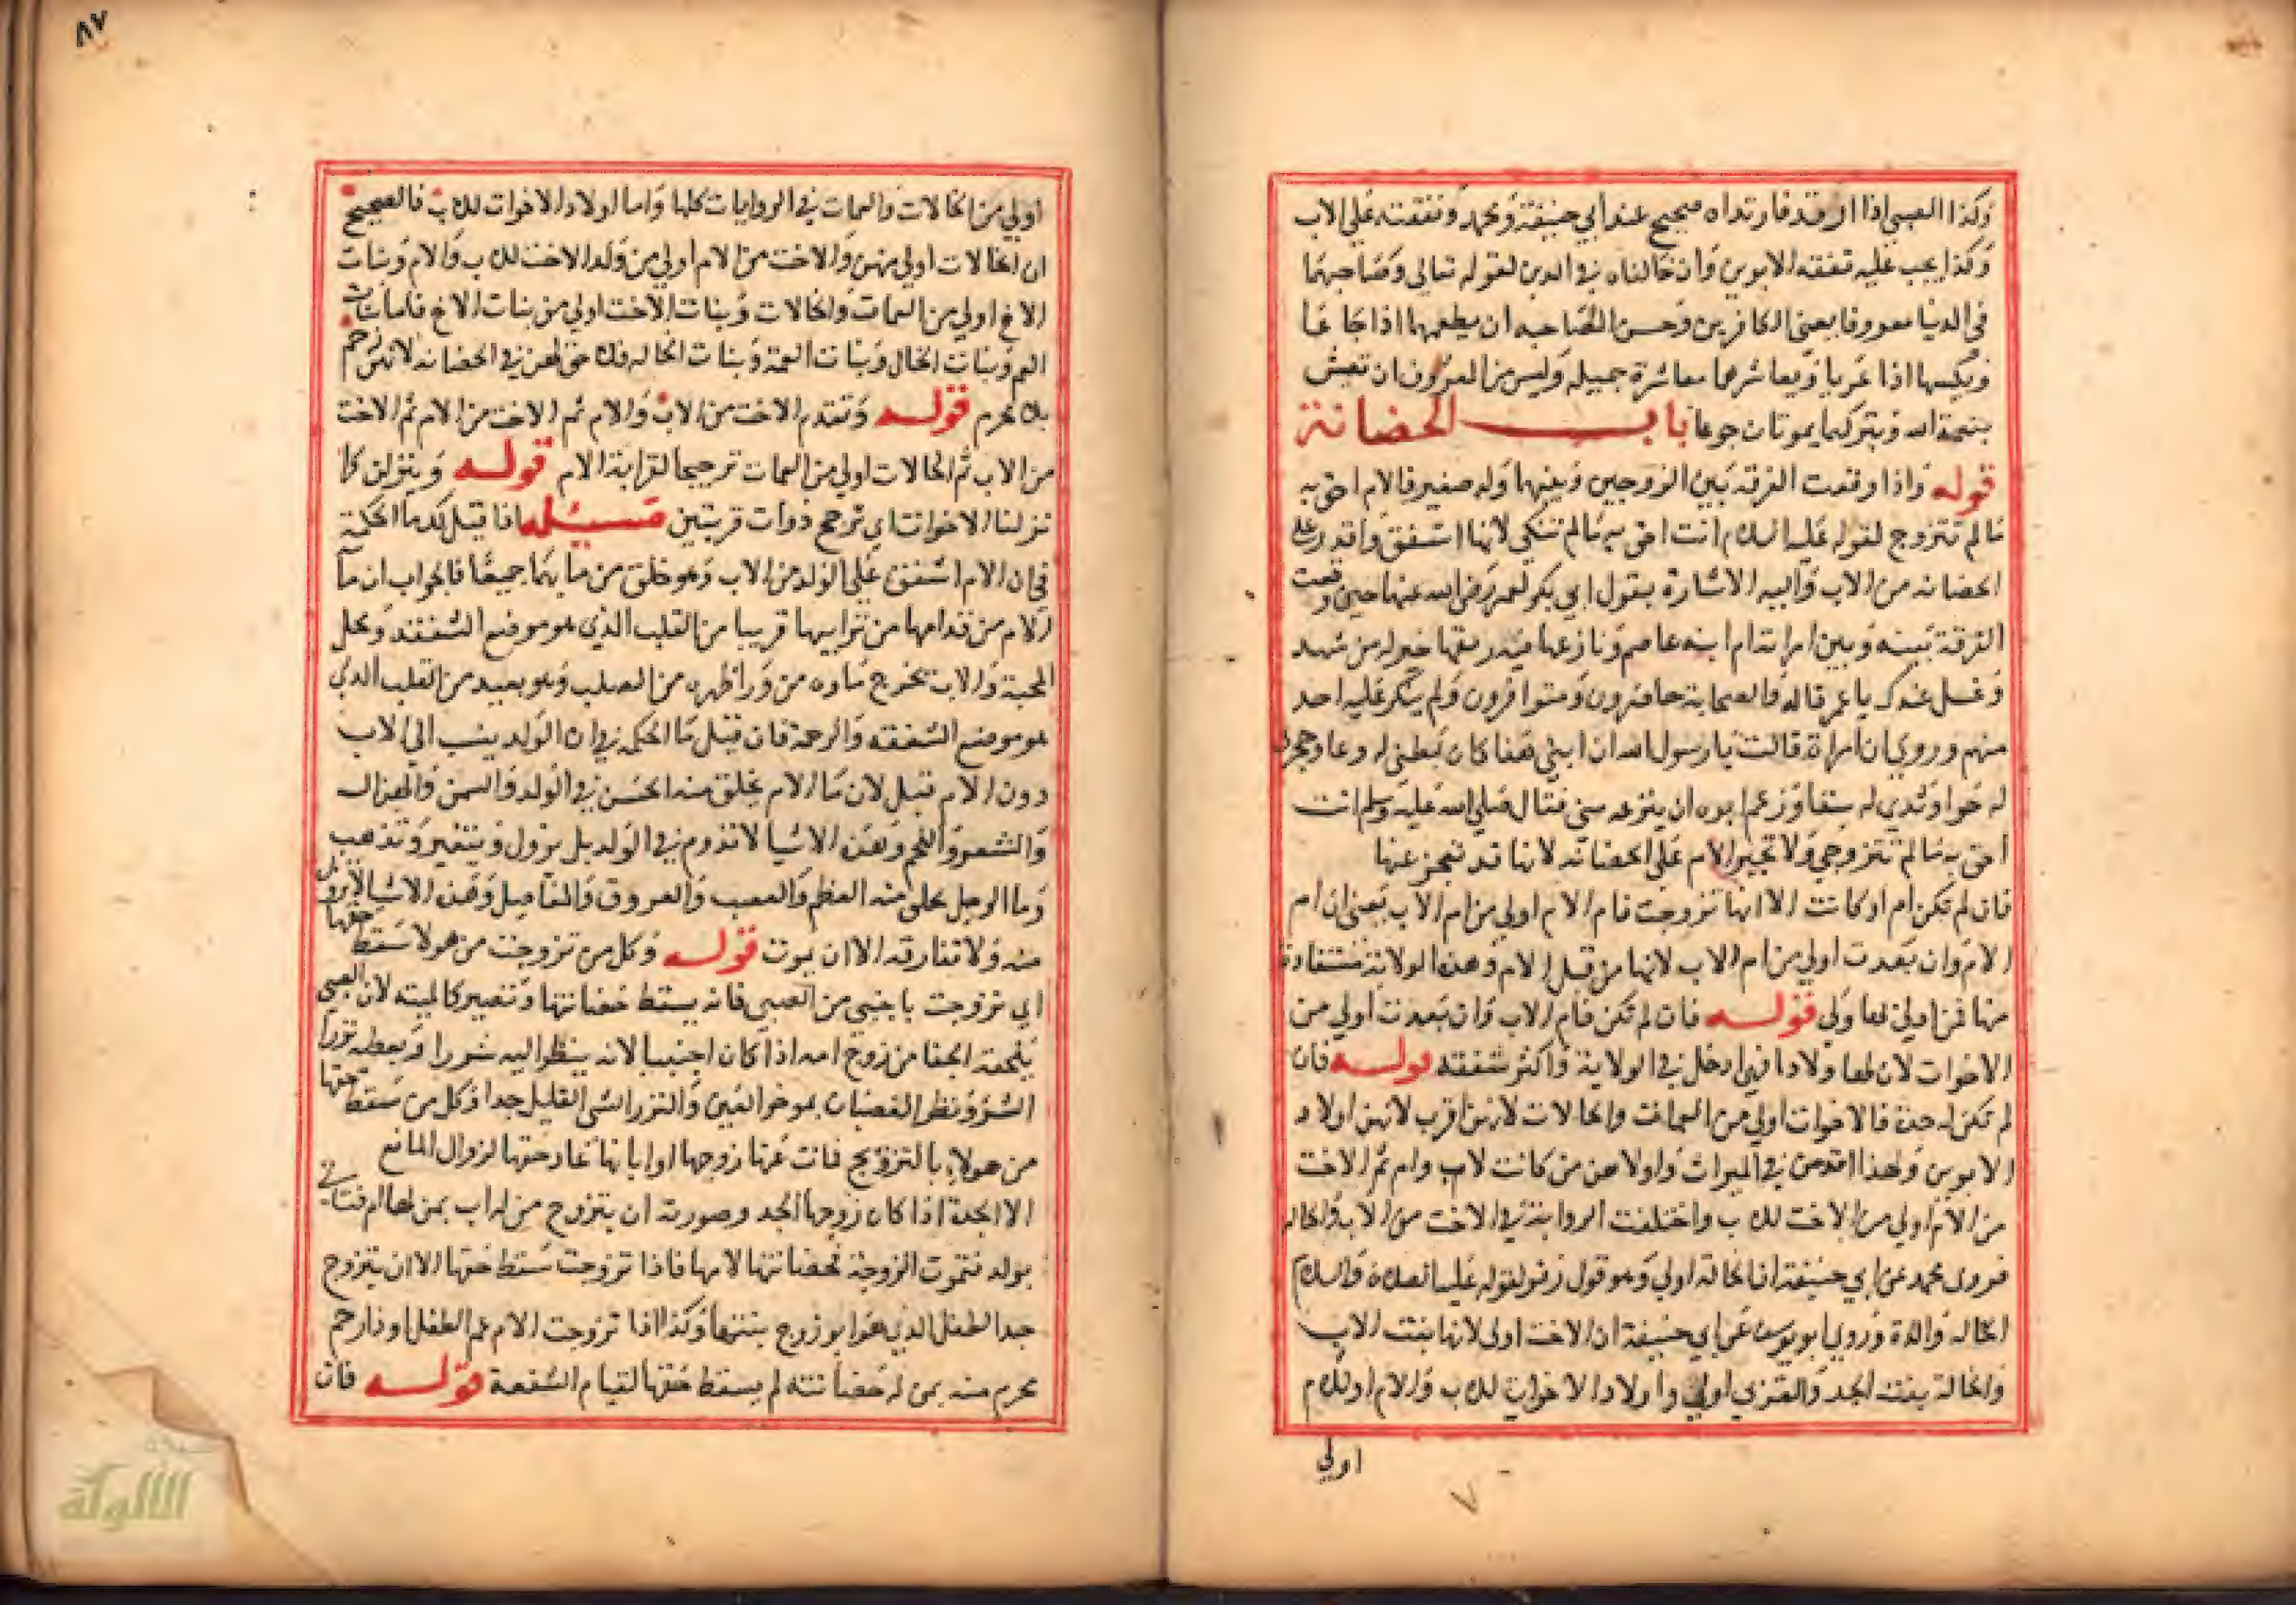 وكذا الصبي اذا ارتد فارتداده صحيح عند ابي حنيفة ومحمد ونفقته على الاب
وكذا يجب عليه نفقة الابوين وان خالفاه في الدين لقوله تعالى وصاحبهما
في الدنيا معروفا يعني الكافرين وحسن المصاحبه ان يطعمهما اذا جاعا
ويكسيهما اذا عريا ويعاشرهما معاشرة جميله وليس من المعروف ان تعيش
بنعمة الله ويتركهما يموتان جوعا باب الحضانة
قوله واذا وقعت الفرقه بين الزوجين وبينهما ولد صغير فالام احق به
ما لم تتزوج لقوله عليه السلام انت احق به ما لم تنكحي لانها اشفق واقدر على
الحضانه من الاب واليه الاشارة بقول ابي بكر لعمر رضي الله عنهما حين وقعت
الفرقة بينه وبين امراته ام ابنه عاصم ونازعها فيه ريقها خير له من شهد
وعسل عندك يا عمر قاله والصحابة حاضرون ومتوافرون ولم ينكر عليه احد
منهم وروي ان امراة قالت يا رسول الله ان ابني هذا كان بطني له وعا وحجري
له حوا وثدي له سقا وزعم ابوه ان ينزعه مني فقال صلى الله عليه وسلم انت
احق به ما لم تتزوجي ولا تجبر الام على الحضانة لانها قد تعجز عنها
فان لم تكن ام او كانت الا انها تزوجت فام الام اولي من ام الاب يعني ان ام
الام وان بعدت اولي من ام الاب لانها من قبل الام وهذه الولاية مستفادة
منها فمن ادلي بها اولي قوله فان لم تكن فام الاب وان بعدت اولي من
الاخوات لان لها ولادا فهي ادخل في الولاية واكثر شفقة قوله فان
لم تكن له جدة فالاخوات اولي من العمات والخالات لانهن اقرب لانهن اولاد
الابوين ولهذا قدمن في الميراث واولاهن من كانت لاب وام ثم الاخت
من الام اولي من الاخت للاب واختلفت الرواية في الاخت من الاب والخاله
فروى محمد عن ابي حنيفة ان الخالة اولي وهو قول زفر لقوله عليه الصلاة والسلام
الخاله والدة وروي ابو يوسف عن ابي حنيفة ان الاخت اولى لانها بنت الاب
والخالة بنت الجد والقربي اولي واولاد الاخوات للاب والام او للام
اولي
٨٧
اولي من الخالات والعمات في الروايات كلها واما اولاد الاخوات للاب فالصحيح
ان الخالات اولي منهن والاخت من الام اولي من ولد الاخت للاب والام وبنات
الاخ اولي من العمات والخالات وبنات الاخت اولي من بنات الاخ فاما بنات
العم وبنات الخال وبنات العمة وبنات الخاله فلا حق لهن في الحضانه لانهن رحم
بلا محرم قوله وتقدم الاخت من الاب والام ثم الاخت من الام ثم الاخت
من الاب ثم الخالات اولي من العمات ترجيحا لقرابة الام قوله وينزلن كما
نزلنا الاخوات اي ترجح ذوات قربتين مسئله اذا قيل لك ما الحكمة
في ان الام اشفق على الولد من الاب وهو خلق من مايهما جميعا فالجواب ان ما
الام من قدامها من ترايبها قريبا من القلب الذي هو موضع الشفقة ومحل
المحبة والاب يخرج ماوه من ورا ظهره من الصلب وهو بعيد من القلب الذي
هو موضع الشفقه والرحمة فان قيل ما الحكمه في ان الولد ينسب الي الاب
دون الام قيل لان ما الام يخلق منه الحسن في الولد والسمن والهزال
والشعر واللحم وهذه الاشيا لا تدوم في الولد بل تزول وتتغير وتذهب
وما الرجل يخلق منه العظم والعصب والعروق والمفاصل وهذه الاشيا لا تزول
منه ولا تفارقه الا ان يموت قوله وكل من تزوجت من هولا سقط حقها
اي تزوجت باجنبي من الصبي فانه يسقط حضانتها وتصير كالميته لان الصبي
يلحقه الجفا من زوج امه اذا كان اجنبيا لانه ينظر اليه شزرا ويعطه نزرا
الشزر نظر الغضبان بموخر العين والنزر الشي القليل جدا وكل من سقط حقها
من هولاء بالتزويج فمات عنها زوجها او ابانها عاد حقها لزوال المانع
الا الجدة اذا كان زوجها الجد وصورته ان يتزوج من له اب بمن لها ام فتاتي
بولد فتموت الزوجة فحضانتها لامها فاذا تزوجت سقط حقها الا ان يتزوج
جد الطفل الذي هو ابو زوج بنتها وكذا اذا تزوجت الام عم الطفل او ذا رحم
محرم منه ممن له حضانته لم يسقط حقها لقيام الشفقة قوله فان
الألوكة